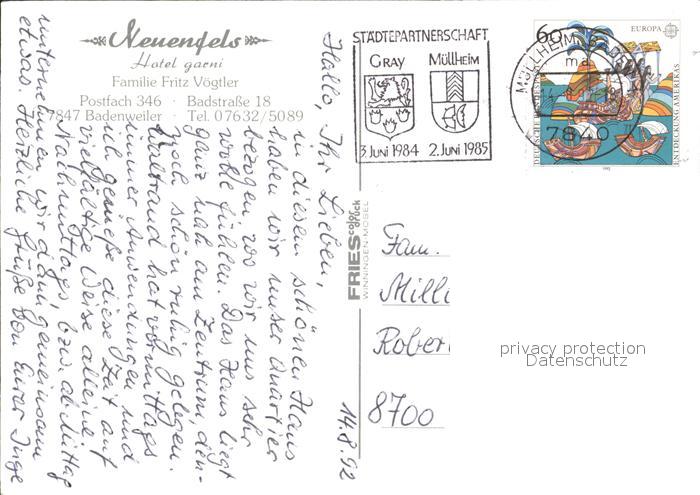 Neuenfels
Hotel garni
Familie Fritz Vögtler
Postfach 346 · Badstraße 18
7847 Badenweiler · Tel. 07632/5089
14.8.92
Hallo, Ihr Lieben,
in diesem schönen Haus
haben wir unser Quartier
bezogen, wo wir uns sehr
wohl fühlen. Das Haus liegt
ganz nah am Zentrum, den-
noch schön ruhig gelegen.
Waltraud hat vormittags
immer Anwendungen und
ich genieße diese Zeit auf
vielfältige Weise alleine.
Nachmittags, bzw. ab Mittag
unternehmen wir dann gemeinsam
etwas. Herzliche Grüße von Eurer Inge
STÄDTEPARTNERSCHAFT
GRAY MÜLLHEIM
3. JUNI 1984 2. JUNI 1985
MÜLLHEIM
ma
7840
60
EUROPA
DEUTSCHE BUNDESPOST
ENTDECKUNG AMERIKAS
1992
FRIES color druck
WINNINGEN-MOSEL
Fam.
Milli
Rober
8700
privacy protection
Datenschutz